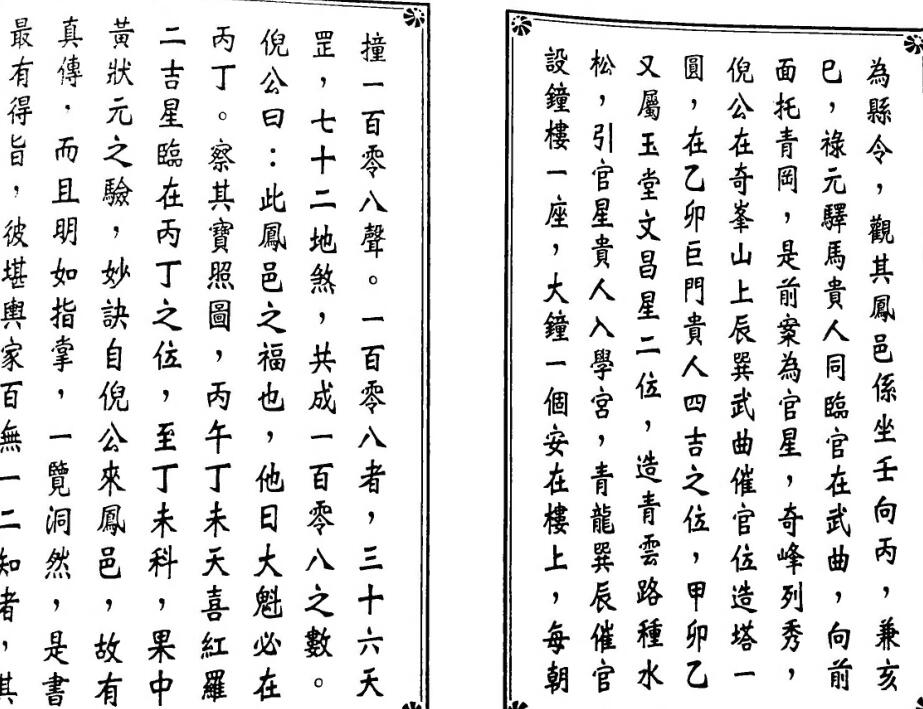 為縣令，觀其鳳邑係坐壬向丙，兼亥
巳，祿元驛馬貴人同臨官在武曲，向前
面托青岡，是前案為官星，奇峰列秀，
倪公在奇峯山上辰巽武曲催官位造塔一
圓，在乙卯巨門貴人四吉之位，甲卯乙
又屬玉堂文昌星二位，造青雲路種水
松，引官星貴人入學宮，青龍巽辰催官
設鐘樓一座，大鐘一個安在樓上，每朝
撞一百零八聲。一百零八者，三十六天
罡，七十二地煞，共成一百零八之數。
倪公曰：此鳳邑之福也，他日大魁必在
丙丁。察其寶照圖，丙午丁未天喜紅羅
二吉星臨在丙丁之位，至丁未科，果中
黃狀元之驗，妙訣自倪公來鳳邑，故有
真傳．而且明如指掌，一覽洞然，是書
最有得旨，彼堪輿家百無一二知者，其